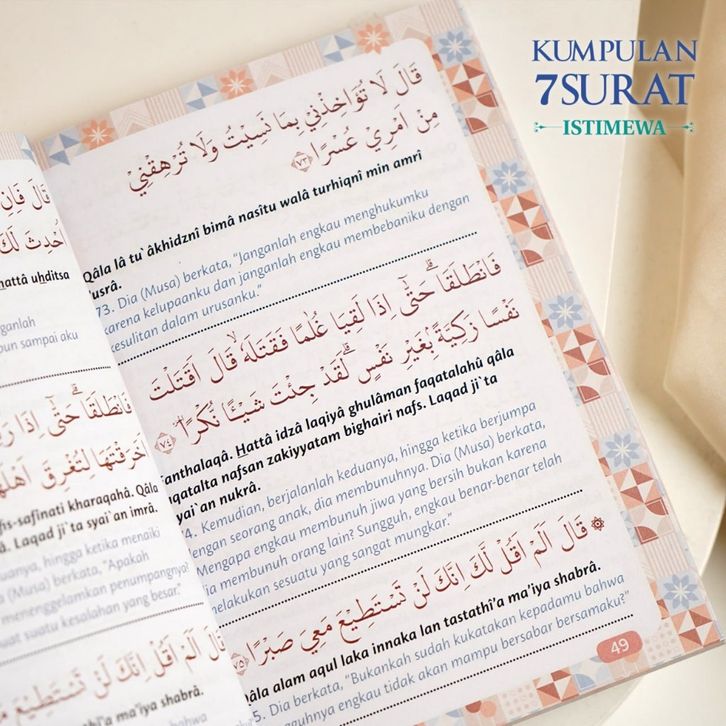 KUMPULAN
7SURAT
ISTIMEWA
قَالَ لَا تُؤَاخِذْنِيْ بِمَا نَسِيْتُ وَلَا تُرْهِقْنِيْ
مِنْ اَمْرِيْ عُسْرًا ﴿٧٣﴾
Qâla lâ tu`âkhidznî bimâ nasîtu walâ turhiqnî min amrî
usrâ.
73. Dia (Musa) berkata, “Janganlah engkau menghukumku
karena kelupaanku dan janganlah engkau membebaniku dengan
kesulitan dalam urusanku.”
فَانْطَلَقَاۗ حَتّٰٓى اِذَا لَقِيَا غُلٰمًا فَقَتَلَهٗۙ قَالَ اَقَتَلْتَ
نَفْسًا زَكِيَّةً ۢبِغَيْرِ نَفْسٍۗ لَقَدْ جِئْتَ شَيْـًٔا نُكْرًا ﴿٧٤﴾
anthalaqâ. Hattâ idzâ laqiyâ ghulâman faqatalahû qâla
aqatalta nafsan zakiyyatam bighairi nafs. Laqad ji`ta
syai`an nukrâ.
74. Kemudian, berjalanlah keduanya, hingga ketika berjumpa
dengan seorang anak, dia membunuhnya. Dia (Musa) berkata,
“Mengapa engkau membunuh jiwa yang bersih bukan karena
dia membunuh orang lain? Sungguh, engkau benar-benar telah
melakukan sesuatu yang sangat mungkar.”
۞ قَالَ اَلَمْ اَقُلْ لَّكَ اِنَّكَ لَنْ تَسْتَطِيْعَ مَعِيَ صَبْرًا ﴿٧٥﴾
Qâla alam aqul laka innaka lan tastathî’a ma’iya shabrâ.
75. Dia berkata, “Bukankah sudah kukatakan kepadamu bahwa
sungguhnya engkau tidak akan mampu bersabar bersamaku?”
49
قَالَ فَاِنِ
اُحْدِثَ لَكَ
hattâ uhditsa
anganlah
pun sampai aku
فَانْطَلَقَاۗ حَتّٰٓى اِذَا
خَرَقْتَهَا لِتُغْرِقَ اَهْلَهَا
fis-safînati kharaqahâ. Qâla
Laqad ji`ta syai`an imrâ.
duanya, hingga ketika menaiki
(Musa) berkata, “Apakah
menenggelamkan penumpangnya?
suatu kesalahan yang besar.”
قَالَ اَلَمْ اَقُلْ اِنَّكَ لَنْ تَسْتَطِيْعَ
tastathî’a ma’iya shabrâ.